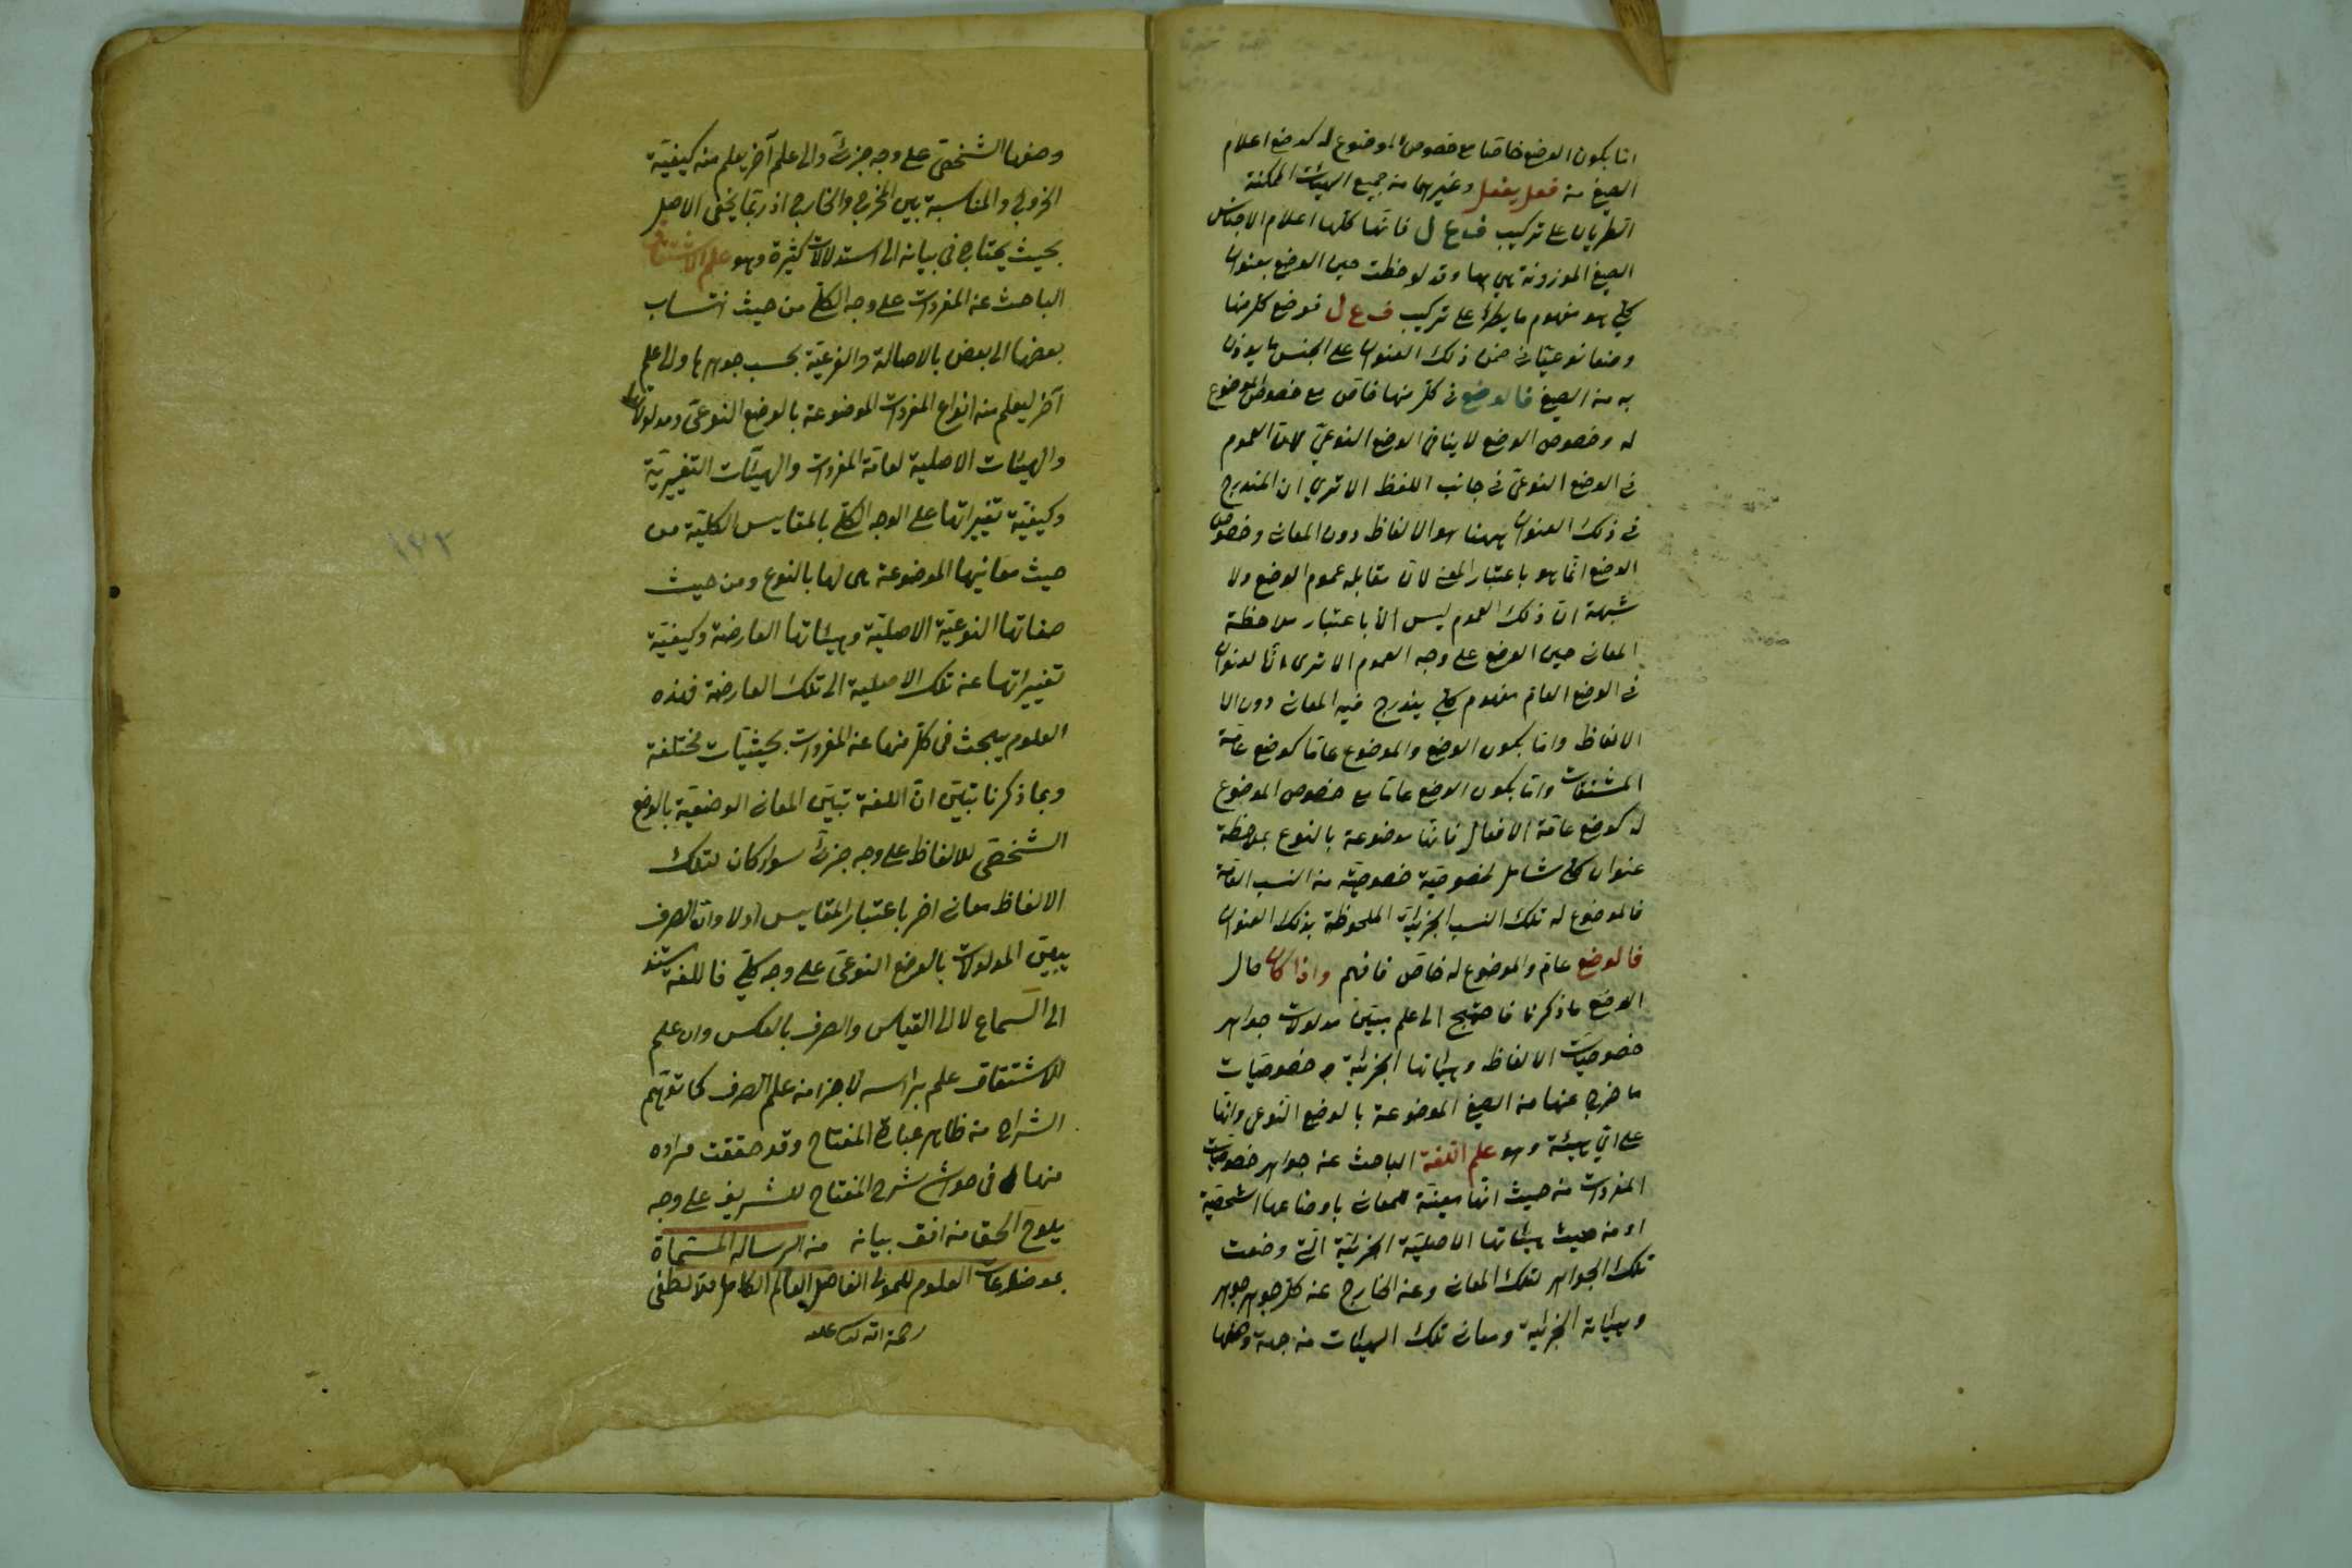 اما يكون الوضع خاصا مع خصوص الموضوع له كوضع اعلام
الصيغ من فعل يفعل وغيرهما من جميع الهيئات الممكنة
الطريان على تركيب ف ع ل فانها كلها اعلام الاجناس
الصيغ الموزونة هي بها وقد لوحظت حين الوضع بعنوان
كلي هو مفهوم ما يطرأ على تركيب ف ع ل فوضع كل منها
وضعا نوعيا في ضمن ذلك العنوان على الجنس ما يوزن
به من الصيغ فالوضع في كل منها خاص مع خصوص الموضوع
له وخصوص الوضع لا ينافي الوضع النوعي لان العموم
في الوضع النوعي في جانب اللفظ الا ترى ان المندرج
في ذلك العنوان ههنا هو الالفاظ دون المعاني وخصوص
الوضع انما هو باعتبار المعنى لان مقابله عموم الوضع ولا
شبهة ان ذلك العموم ليس الا باعتبار ملاحظة
المعاني حين الوضع على وجه العموم الا ترى ان العنوان
في الوضع العام مفهوم كلي يندرج فيه المعاني دون الا
الالفاظ واما يكون الوضع والموضوع عاما كوضع عامة
المشتقات واما يكون الوضع عاما مع خصوص الموضوع
له كوضع عامة الافعال فانها موضوعة بالنوع بملاحظة
عنوان كلي شامل لخصوصية خصوصية من النسب التامة
فالموضوع له تلك النسب الجزئيات الملحوظة بذلك العنوان
فالوضع عام والموضوع له خاص فافهم واذا كان حال
الوضع ما ذكرنا فاحتيج الى علم يبين مدلولات جواهر
خصوصيات الالفاظ وهيئاتها الجزئية و خصوصيات
ما خرج عنها من الصيغ الموضوعة بالوضع النوعي وانها
على اي هيئة وهو علم اللغة الباحث عن جواهر خصوصيات
المفردات من حيث انها معينة للمعاني باوضاعها الشخصية
او من حيث هيئاتها الاصلية الجزئية التي وضعت
تلك الجواهر لتلك المعاني وعن الخارج عن كل جوهر جوهر
وهيئاته الجزئية ومعاني تلك الهيئات من جهة وضعها
وضعها الشخصي على وجه جزئي والى علم آخر يعلم منه كيفية
الخروج والمناسبة بين المخرج والخارج اذ ربما يخفى الاصل
بحيث يحتاج في بيانه الى استدلالات كثيرة وهو علم الاشتقاق
الباحث عن المفردات على وجه الكلي من حيث انتساب
بعضها الى بعض بالاصالة والفرعية بحسب جوهرها والى علم
آخر ليعلم منه انواع المفردات الموضوعة بالوضع النوعي ومدلولاتها
والهيئات الاصلية لعامة المفردات والهيئات التغييرية
وكيفية تغييراتها على الوجه الكلي بالمقاييس الكلية من
حيث معانيها الموضوعة هي لها بالنوع ومن حيث
صفاتها النوعية الاصلية وهيئاتها العارضة وكيفية
تغييراتها عن تلك الاصلية الى تلك العارضة فهذه
العلوم يبحث في كل منها عن المفردات بحيثيات مختلفة
وبما ذكرنا تبين ان اللغة تبين المعاني الوضعية بالوضع
الشخصي للالفاظ على وجه جزئي سواء كان لتلك
الالفاظ معان اخر باعتبار المقاييس اولا وان الصرف
يبين المدلولات بالوضع النوعي على وجه كلي فاللغة يستند
الى السماع لا الى القياس والصرف بالعكس وان علم
الاشتقاق علم براسه لا جزأ من علم الصرف كما توهم
الشراح من ظاهر عبارة المفتاح وقد حققت مراده
منها في حواشي شرح المفتاح للشريف على وجه
يلوح الحق من افق بيانه من الرسالة المسماة
بموضوعات العلوم للمولى الفاضل العالم الكامل ملا لطفي
رحمة الله تعالى عليه